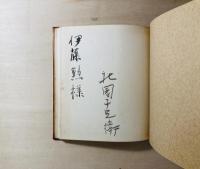 伊藤勲様
北園克衛